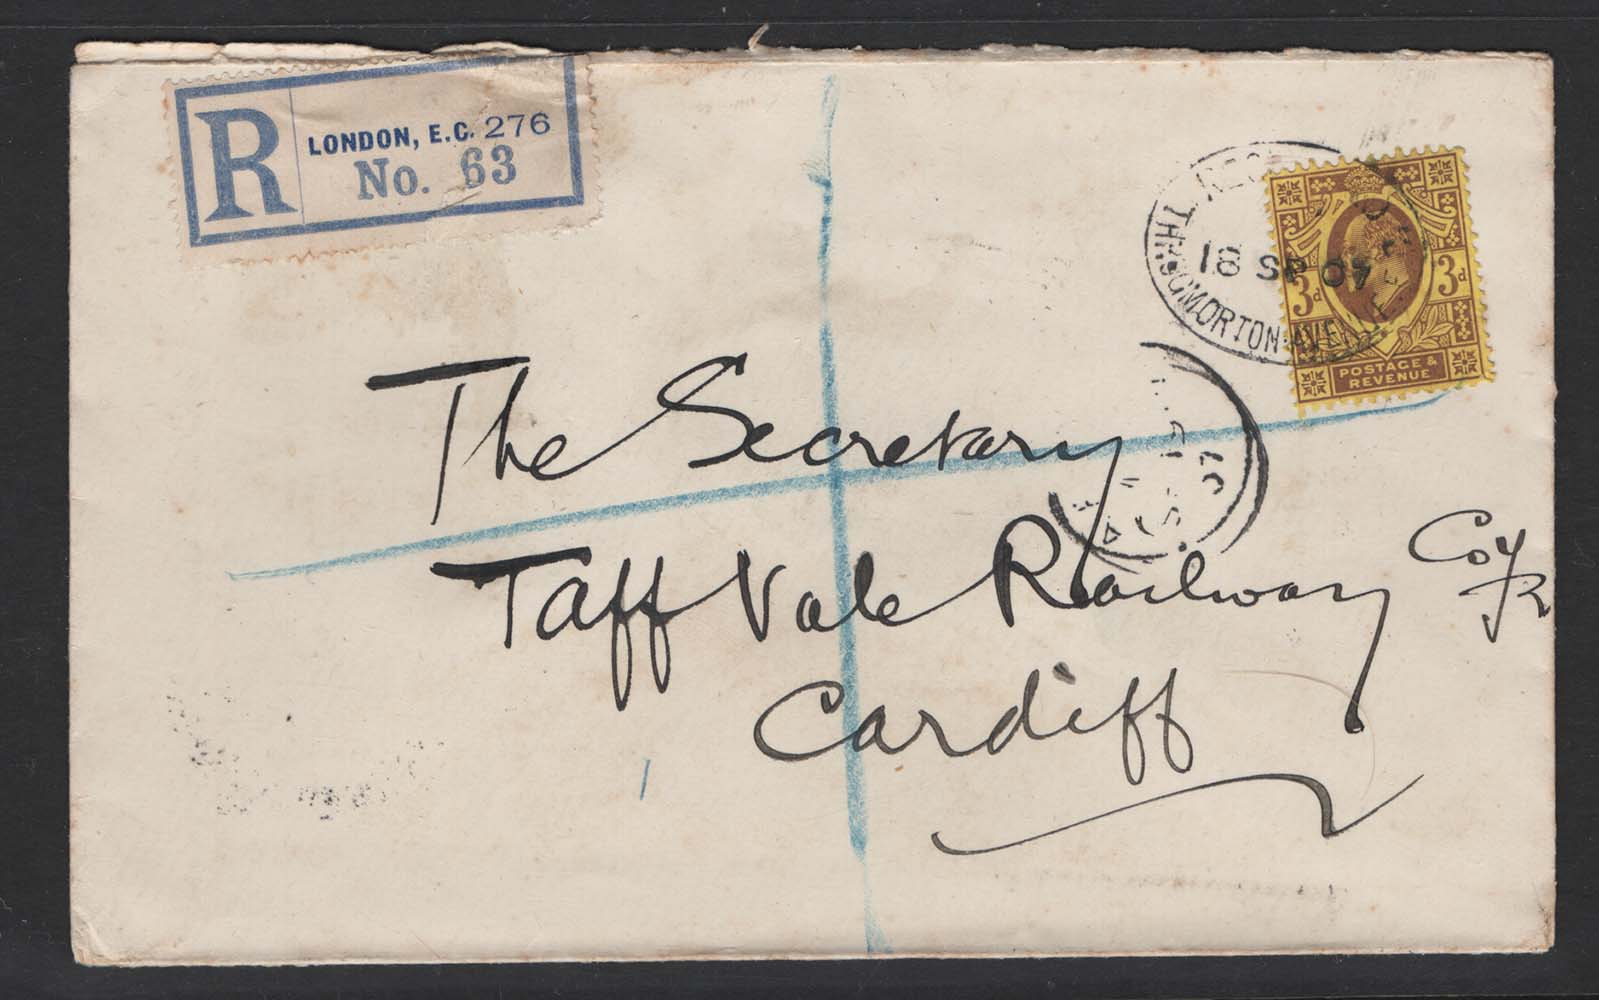 R LONDON, E.C. 276
No. 63
18 SP 07
THROGMORTON AVENUE
3d 3d
POSTAGE &
REVENUE
07
The Secretary
Taff Vale Railway Coy
Cardiff